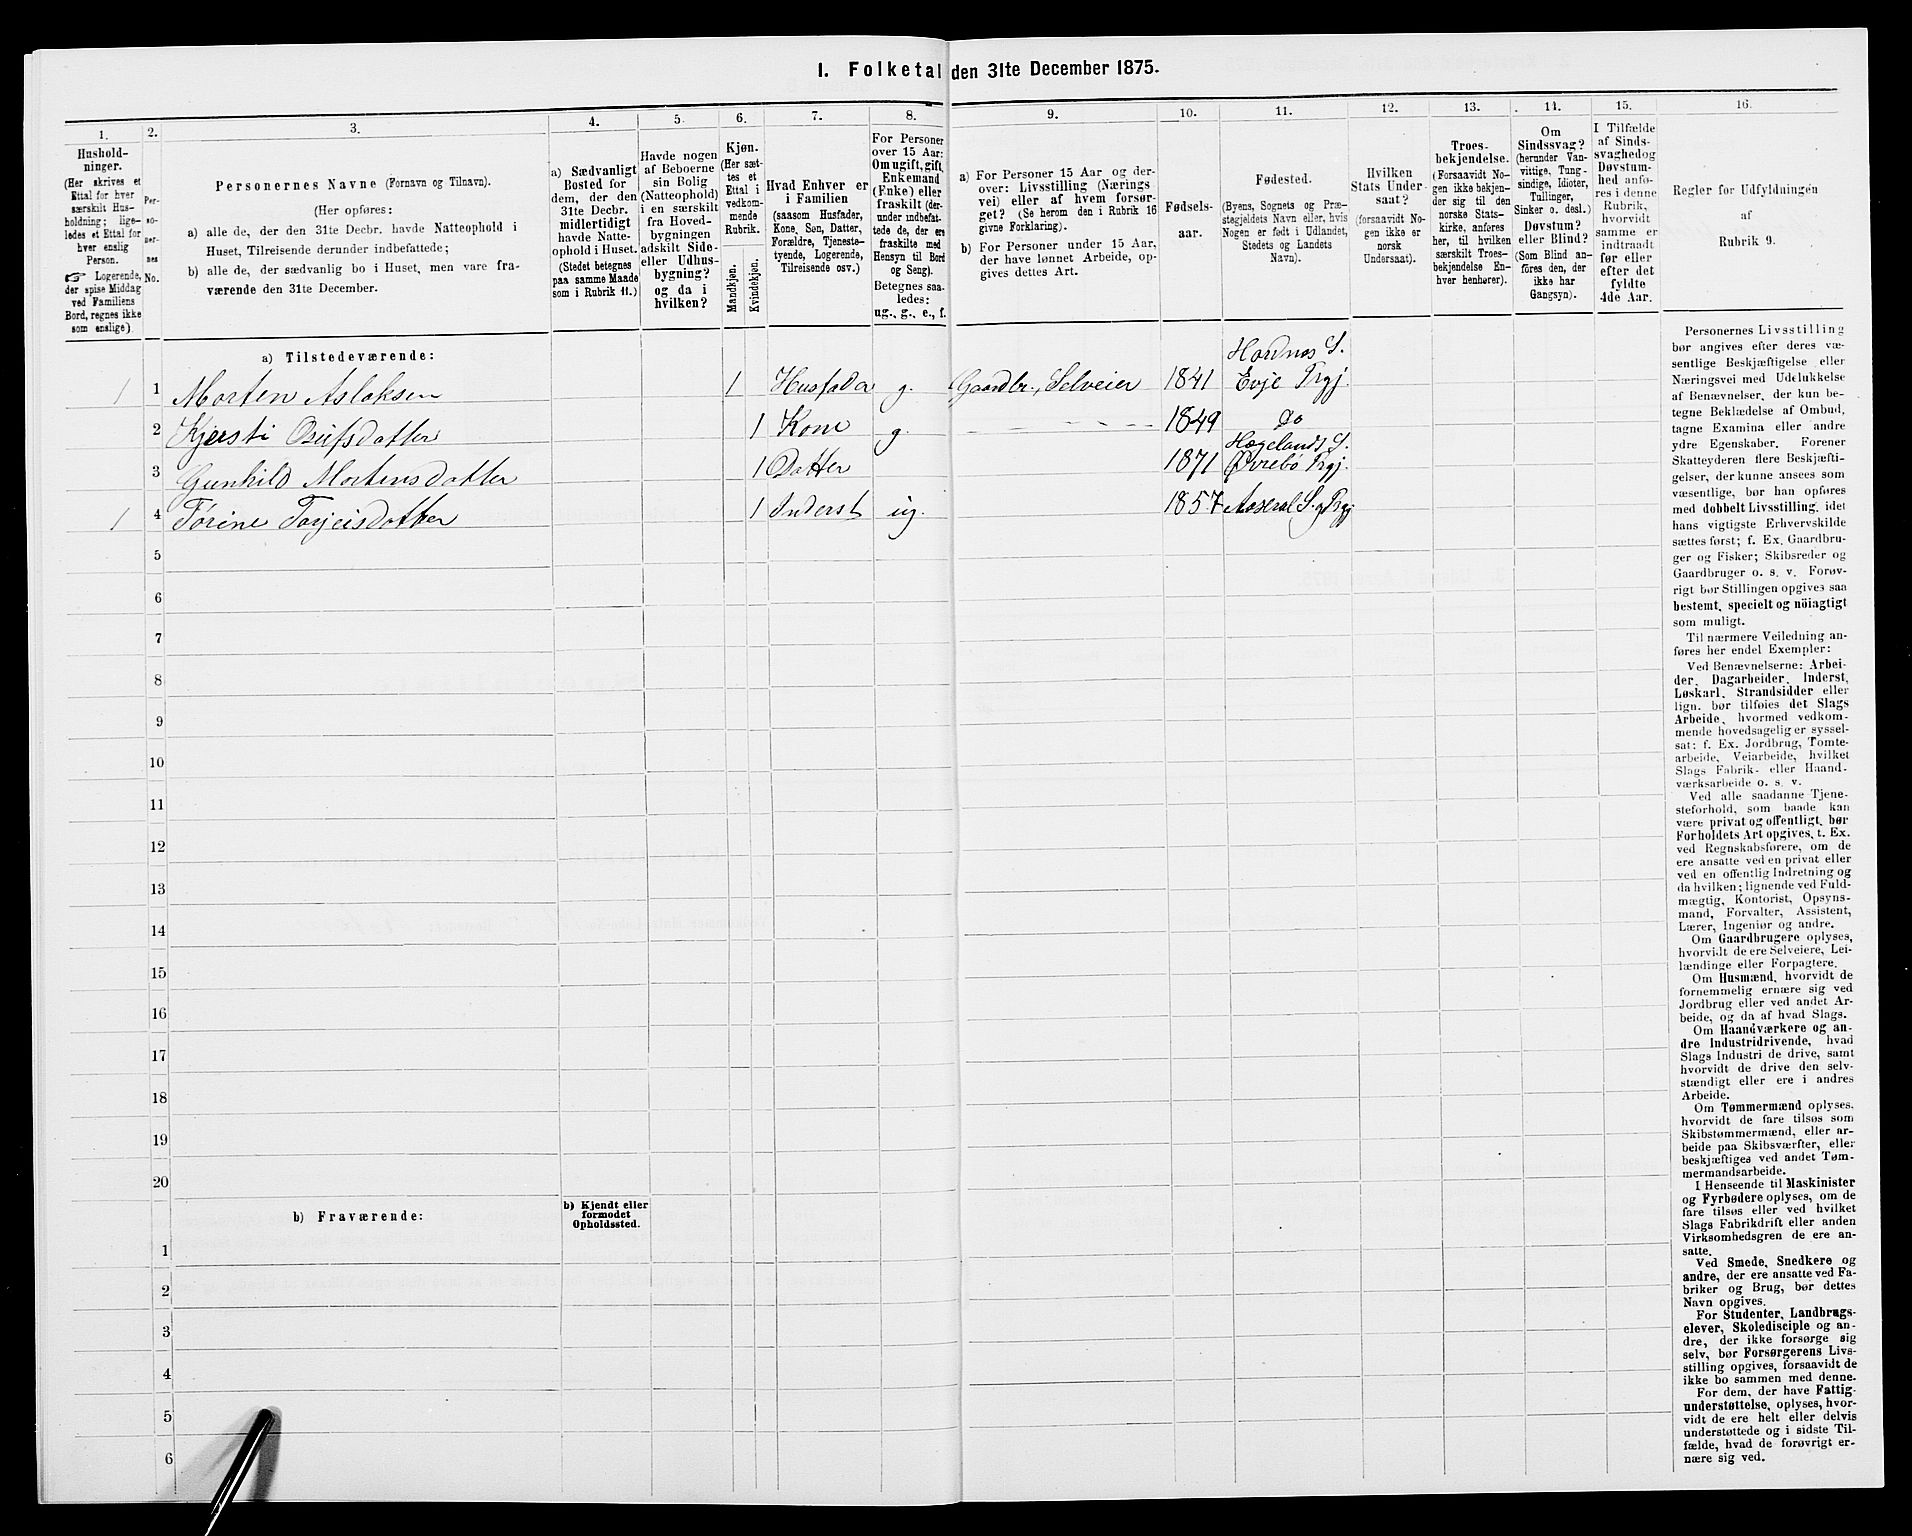 I. Folketal den 31te December 1875.
1.
2.
3.
4.
5.
6.
7.
8.
9.
10.
11.
12.
13.
14.
15.
16.
Hushold-
ninger.
(Her skrives et
Ettal for hver
særskilt Hus-
holdning; lige-
ledes et Ettal for
hver enslig
Person.
☞ Logerende,
der spise Middag
ved Familiens
Bord, regnes ikke
som enslige).
Per-
so-
ner-
nes
No.
Personernes Navne (Fornavn og Tilnavn).
(Her opføres:
a) alle de, der den 31te Decbr. havde Natteophold i
Huset, Tilreisende derunder indbefattede;
b) alle de, der sædvanlig bo i Huset, men vare fra-
værende den 31te December.
a) Sædvanligt
Bosted for
dem, der den
31te Decbr.
midlertidigt
havde Natte-
ophold i Huset.
(Stedet betegnes
paa samme Maade
som i Rubrik 11.)
Havde nogen
af Beboerne
sin Bolig
(Natteophold)
i en særskilt
fra Hoved-
bygningen
adskilt Side-
eller Udhus-
bygning?
og da i
hvilken?
Kjøn.
(Her sæt-
tes et
Ettal i
vedkom-
mende
Rubrik.
Mandkjøn.
Kvindekjøn.
Hvad Enhver er
i Familien
(saasom Husfader,
Kone, Søn, Datter,
Forældre, Tjeneste-
tyende, Logerende,
Tilreisende osv.)
For Personer
over 15 Aar:
Om ugift, gift,
Enkemand
(Enke) eller
fraskilt (der-
under indbefat-
tede de, der ere
fraskilte med
Hensyn til Bord
og Seng).
Betegnes saa-
ledes:
ug., g., e., f.
a) For Personer 15 Aar og der-
over: Livsstilling (Nærings-
vei) eller af hvem forsør-
get? (Se herom den i Rubrik 16
givne Forklaring).
b) For Personer under 15 Aar,
der have lønnet Arbeide, op-
gives dettes Art.
Fødsels-
aar.
Fødested.
(Byens, Sognets og Præ-
stegjeldets Navn eller, hvis
Nogen er født i Udlandet,
Stedets og Landets
Navn).
Hvilken
Stats Under-
saat?
(forsaavidt No-
gen ikke er
norsk
Undersaat).
Troes-
bekjendelse.
(Forsaavidt No-
gen ikke bekjen-
der sig til den
norske Stats-
kirke, anføres
her, til hvilken
særskilt Troes-
bekjendelse En-
hver henhører).
Om
Sindssvag?
(herunder Van-
vittige, Tung-
sindige, Idioter,
Tullinger,
Sinker o. desl.)
Døvstum?
eller Blind?
(Som Blind an-
føres den, der
ikke har
Gangsyn).
I Tilfælde
af Sinds-
svaghed og
Døvstum-
hed anfø-
res i denne
Rubrik,
hvorvidt
samme er
indtraadt
før eller
efter det
fyldte
4de Aar.
Regler for Udfyldningen
af
Rubrik 9.
a) Tilstedeværende:
Hordnes S.
1 1 Morten Aslaksen 1 Husfader g. Gaardbr., Selveier 1841 Evje Prgj.
2 Kjersti Osufsdatter 1 Kone g. 1849 do
Hægelands S.
3 Gunhild Mortensdatter 1 Datter 1871 Øvrebö Prgj.
1 4 Tørine Torjeisdatter 1 Inderst ug. 1857 Aaseral S. og Prgj
5
6
7
8
9
10
11
12
13
14
15
16
17
18
19
20
b) Fraværende:
b) Kjendt eller
formodet
Opholdssted.
1
2
3
4
5
6
Personernes Livsstilling
bør angives efter deres væ-
sentlige Beskjæftigelse eller
Næringsvei med Udelukkelse
af Benævnelser, der kun be-
tegne Beklædelse af Ombud,
tagne Examina eller andre
ydre Egenskaber. Forener
Skatteyderen flere Beskjæfti-
gelser, der kunne ansees som
væsentlige, bør han opføres
med dobbelt Livsstilling, idet
hans vigtigste Erhvervskilde
sættes først; f. Ex. Gaardbru-
ger og Fisker; Skibsreder og
Gaardbruger o. s. v. Forøv-
rigt bør Stillingen opgives saa
bestemt, specielt og nöiagtigt
som muligt.
Til nærmere Veiledning an-
føres her endel Exempler:
Ved Benævnelserne: Arbei-
der, Dagarbeider, Inderst,
Løskarl, Strandsidder eller
lign. bør tilføies det Slags
Arbeide, hvormed vedkom-
mende hovedsagelig er syssel-
sat; f. Ex. Jordbrug, Tomte-
arbeide, Veiarbeide, hvilket
Slags Fabrik- eller Haand-
værksarbeide o. s. v.
Ved alle saadanne Tjene-
steforhold, som baade kan
være privat og offentligt, bør
Forholdets Art opgives, t. Ex.
ved Regnskabsførere, om de
ere ansatte ved en privat eller
ved en offentlig Indretning og
da hvilken; lignende ved Fuld-
mægtig, Kontorist, Opsyns-
mand, Forvalter, Assistent,
Lærer, Ingeniør og andre.
Om Gaardbrugere oplyses,
hvorvidt de ere Selveiere, Lei-
lændinge eller Forpagtere.
Om Husmænd, hvorvidt de
fornemmelig ernære sig ved
Jordbrug eller ved andet Ar-
beide, og da af hvad Slags.
Om Haandværkere og an-
dre Industridrivende, hvad
Slags Industri de drive, samt
hvorvidt de drive den selv-
stændigt eller ere i andres
Arbeide.
Om Tømmermænd oplyses,
hvorvidt de fare tilsøs som
Skibstømmermænd, eller ar-
beide paa Skibsværfter, eller
beskjæftiges ved andet Tøm-
mermandsarbeide.
I Henseende til Maskinister
og Fyrbødere oplyses, om de
fare tilsøs eller ved hvilket
Slags Fabrikdrift eller anden
Virksomhedsgren de ere an-
satte.
Ved Smede, Snedkere og
andre, der ere ansatte ved Fa-
briker og Brug, bør dettes
Navn opgives.
For Studenter, Landbrugs-
elever, Skoledisciple og an-
dre, der ikke forsørge sig
selv, bør Forsørgerens Livs-
stilling opgives, forsaavidt de
ikke bo sammen med denne.
For dem, der have Fattig-
understøttelse, oplyses, hvor-
vidt de ere helt eller delvis
understøttede og i sidste Til-
fælde, hvad de forøvrigt er-
nære sig ved.